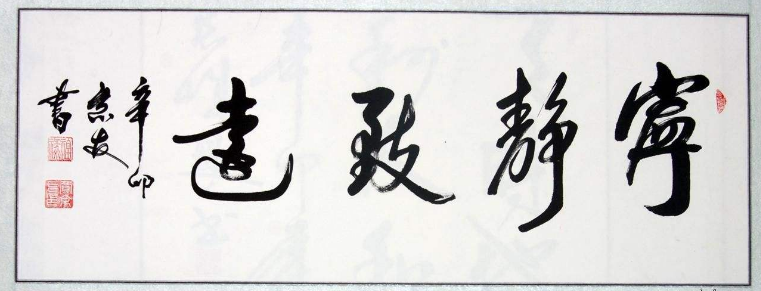 寧靜致遠
辛卯
志友
書